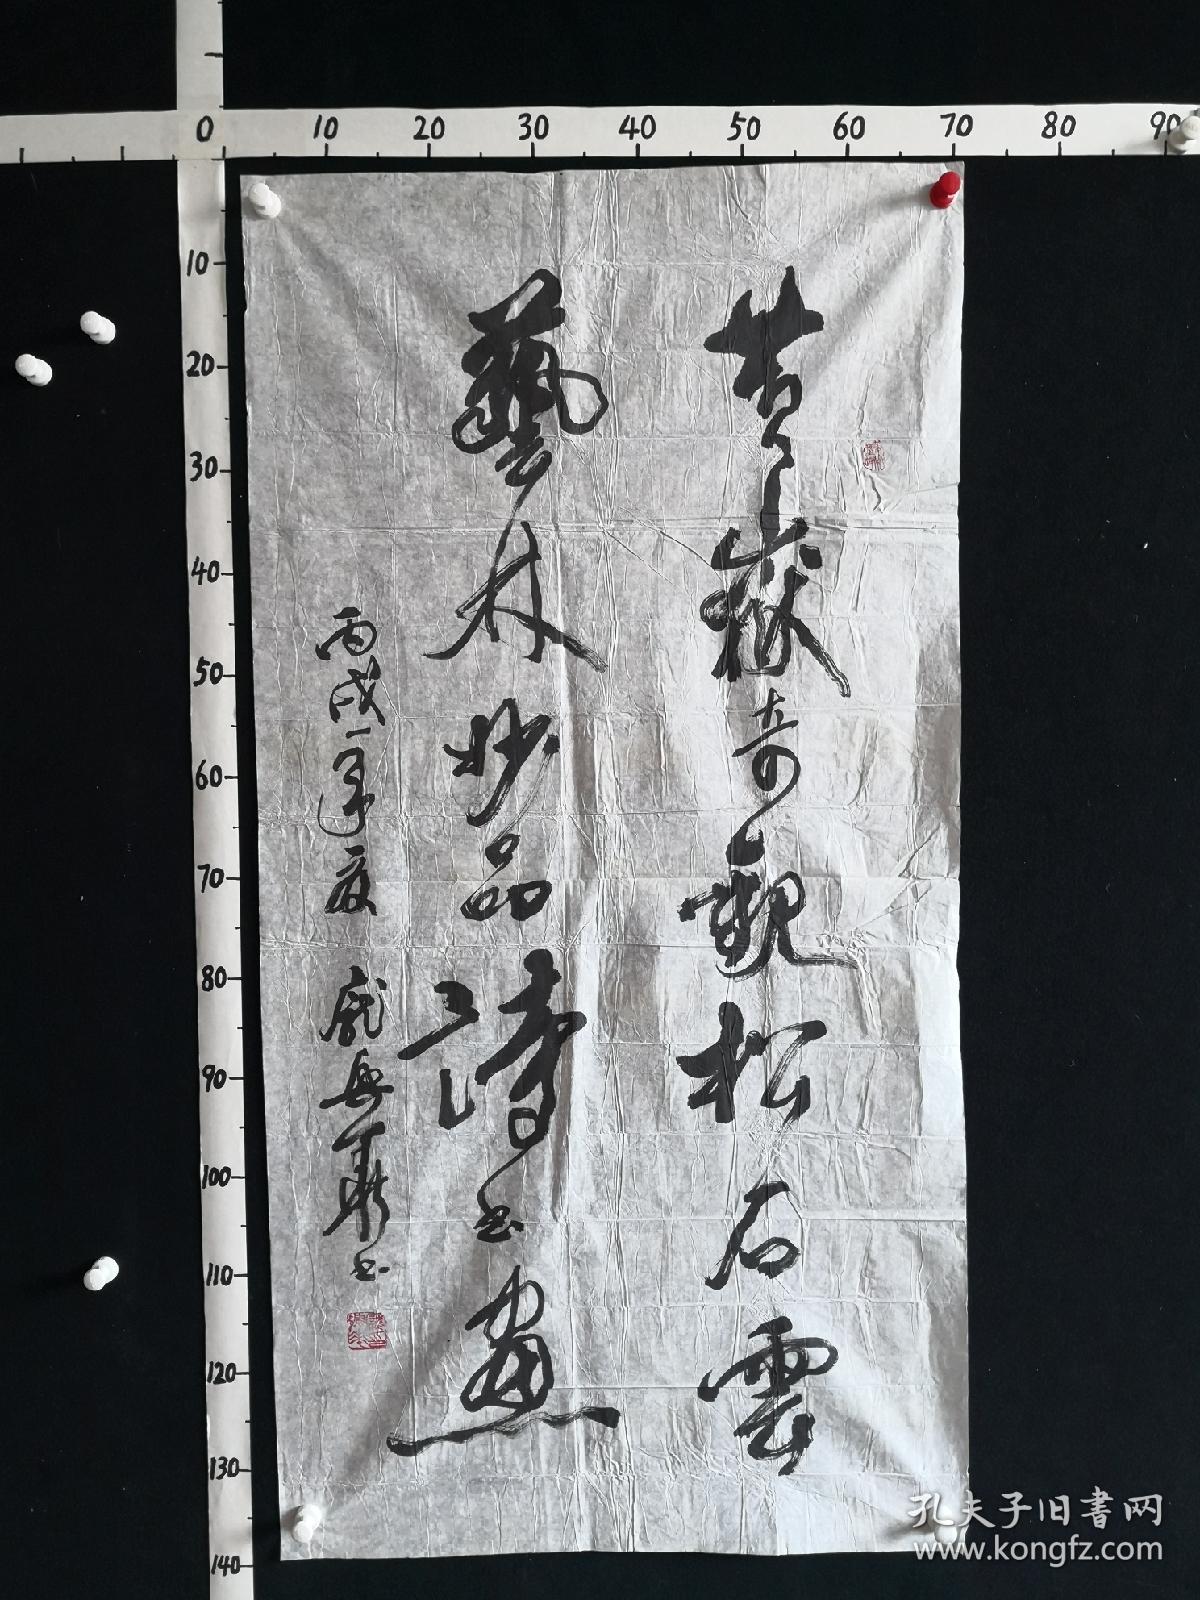 0 10 20 30 40 50 60 70 80 90
10
20
30
40
50
60
70
80
90
100
110
120
130
140
黄嶽奇觀松石雲
藝林妙品詩書畫
丙戌年夏 戲興華書
孔夫子旧書网
www.kongfz.com